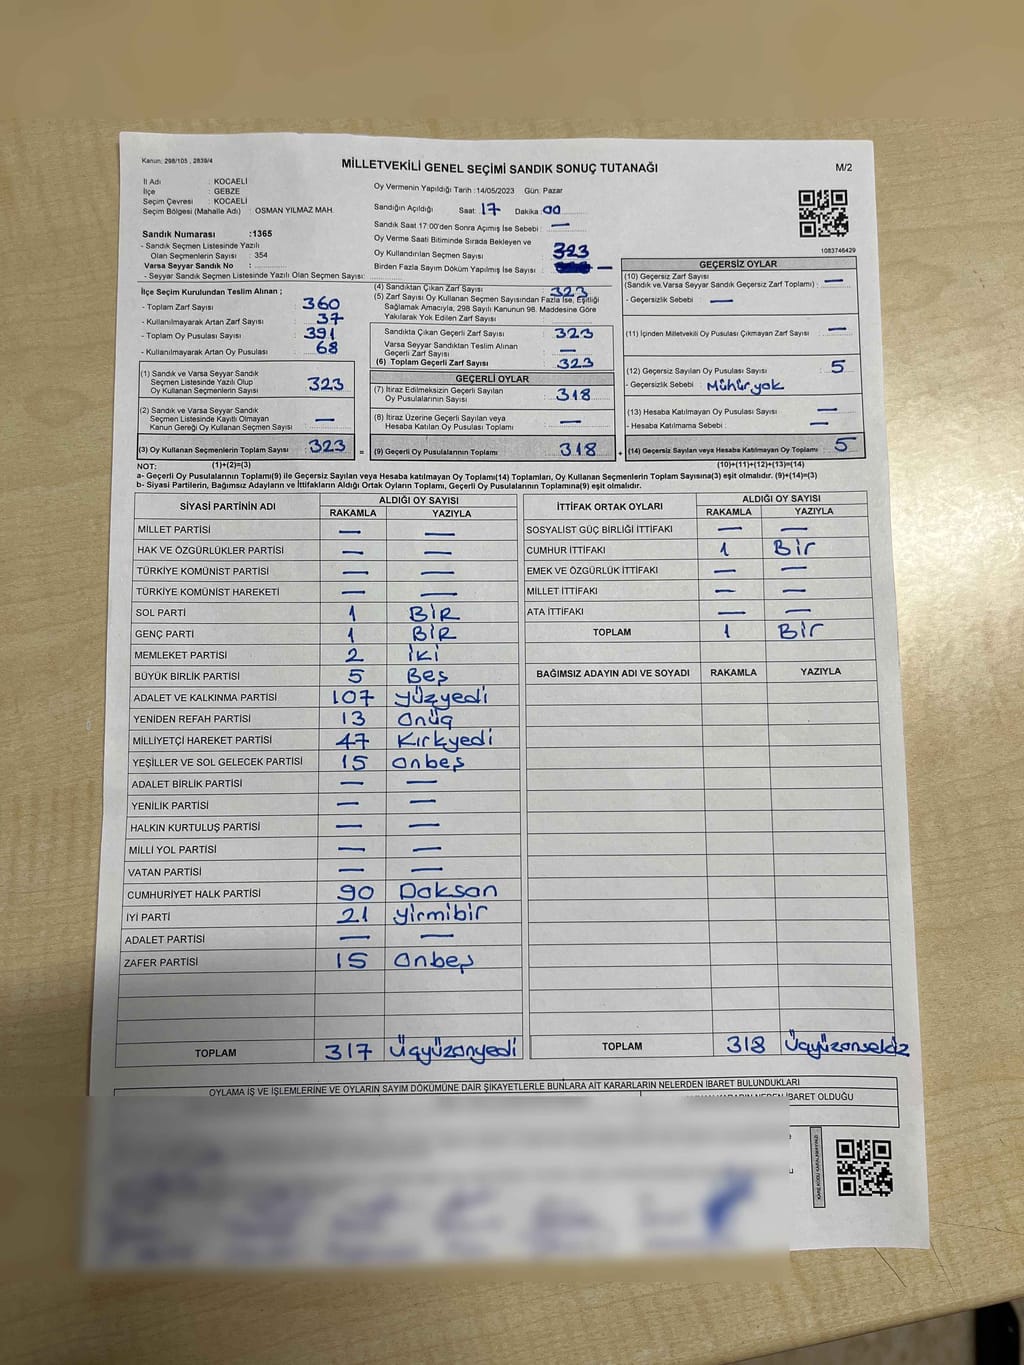 Kanun: 298/105 , 2839/4
MİLLETVEKİLİ GENEL SEÇİMİ SANDIK SONUÇ TUTANAĞI
M/2
İl Adı : KOCAELİ
İlçe : GEBZE
Seçim Çevresi : KOCAELİ
Seçim Bölgesi (Mahalle Adı) : OSMAN YILMAZ MAH.
Sandık Numarası :1365
- Sandık Seçmen Listesinde Yazılı
Olan Seçmenlerin Sayısı : 354
Varsa Seyyar Sandık No :
- Seyyar Sandık Seçmen Listesinde Yazılı Olan Seçmen Sayısı:
Oy Vermenin Yapıldığı Tarih :14/05/2023 Gün: Pazar
Sandığın Açıldığı Saat: 17 Dakika: 00
Sandık Saat 17:00'den Sonra Açımış İse Sebebi : —
Oy Verme Saati Bitiminde Sırada Bekleyen ve
Oy Kullandırılan Seçmen Sayısı : 323
Birden Fazla Sayım Döküm Yapılmış İse Sayısı : —
1083746429
İlçe Seçim Kurulundan Teslim Alınan ;
- Toplam Zarf Sayısı : 360
- Kullanılmayarak Artan Zarf Sayısı : 37
- Toplam Oy Pusulası Sayısı : 391
- Kullanılmayarak Artan Oy Pusulası : 68
(1) Sandık ve Varsa Seyyar Sandık
Seçmen Listesinde Yazılı Olup
Oy Kullanan Seçmenlerin Sayısı : 323
(2) Sandık ve Varsa Seyyar Sandık
Seçmen Listesinde Kayıtlı Olmayan
Kanun Gereği Oy Kullanan Seçmen Sayısı : —
(3) Oy Kullanan Seçmenlerin Toplam Sayısı : 323
(4) Sandıktan Çıkan Zarf Sayısı : 323
(5) Zarf Sayısı Oy Kullanan Seçmen Sayısından Fazla İse, Eşitliği
Sağlamak Amacıyla, 298 Sayılı Kanunun 98. Maddesine Göre
Yakılarak Yok Edilen Zarf Sayısı :
Sandıkta Çıkan Geçerli Zarf Sayısı : 323
Varsa Seyyar Sandıktan Teslim Alınan
Geçerli Zarf Sayısı : —
(6) Toplam Geçerli Zarf Sayısı : 323
GEÇERLİ OYLAR
(7) İtiraz Edilmeksizin Geçerli Sayılan
Oy Pusulalarının Sayısı : 318
(8) İtiraz Üzerine Geçerli Sayılan veya
Hesaba Katılan Oy Pusulası Toplamı : —
= (9) Geçerli Oy Pusulalarının Toplamı : 318
GEÇERSİZ OYLAR
(10) Geçersiz Zarf Sayısı
(Sandık ve Varsa Seyyar Sandık Geçersiz Zarf Toplamı) : —
- Geçersizlik Sebebi : —
(11) İçinden Milletvekili Oy Pusulası Çıkmayan Zarf Sayısı : —
(12) Geçersiz Sayılan Oy Pusulası Sayısı : 5
- Geçersizlik Sebebi : Mühür yok
(13) Hesaba Katılmayan Oy Pusulası Sayısı : —
- Hesaba Katılmama Sebebi : —
+ (14) Geçersiz Sayılan veya Hesaba Katılmayan Oy Toplamı : 5
NOT: (1)+(2)=(3) (10)+(11)+(12)+(13)=(14)
a- Geçerli Oy Pusulalarının Toplamı(9) ile Geçersiz Sayılan veya Hesaba katılmayan Oy Toplamı(14) Toplamları, Oy Kullanan Seçmenlerin Toplam Sayısına(3) eşit olmalıdır. (9)+(14)=(3)
b- Siyasi Partilerin, Bağımsız Adayların ve İttifakların Aldığı Ortak Oyların Toplamı, Geçerli Oy Pusulalarının Toplamına(9) eşit olmalıdır.
SİYASİ PARTİNİN ADI ALDIĞI OY SAYISI
RAKAMLA YAZIYLA
MİLLET PARTİSİ — —
HAK VE ÖZGÜRLÜKLER PARTİSİ — —
TÜRKİYE KOMÜNİST PARTİSİ — —
TÜRKİYE KOMÜNİST HAREKETİ — —
SOL PARTİ 1 BİR
GENÇ PARTİ 1 BİR
MEMLEKET PARTİSİ 2 iki
BÜYÜK BİRLİK PARTİSİ 5 Beş
ADALET VE KALKINMA PARTİSİ 107 yüzyedi
YENİDEN REFAH PARTİSİ 13 Onüç
MİLLİYETÇİ HAREKET PARTİSİ 47 Kırkyedi
YEŞİLLER VE SOL GELECEK PARTİSİ 15 Onbeş
ADALET BİRLİK PARTİSİ — —
YENİLİK PARTİSİ — —
HALKIN KURTULUŞ PARTİSİ — —
MİLLİ YOL PARTİSİ — —
VATAN PARTİSİ — —
CUMHURİYET HALK PARTİSİ 90 Doksan
İYİ PARTİ 21 yirmibir
ADALET PARTİSİ — —
ZAFER PARTİSİ 15 Onbeş
TOPLAM 317 Üçyüzonyedi
İTTİFAK ORTAK OYLARI ALDIĞI OY SAYISI
RAKAMLA YAZIYLA
SOSYALİST GÜÇ BİRLİĞİ İTTİFAKI — —
CUMHUR İTTİFAKI 1 Bir
EMEK VE ÖZGÜRLÜK İTTİFAKI — —
MİLLET İTTİFAKI — —
ATA İTTİFAKI — —
TOPLAM 1 Bir
BAĞIMSIZ ADAYIN ADI VE SOYADI RAKAMLA YAZIYLA
TOPLAM 318 Üçyüzonsekiz
OYLAMA İŞ VE İŞLEMLERİNE VE OYLARIN SAYIM DÖKÜMÜNE DAİR ŞİKAYETLERLE BUNLARA AİT KARARLARIN NELERDEN İBARET BULUNDUKLARI
NEDEN İBARET OLDUĞU